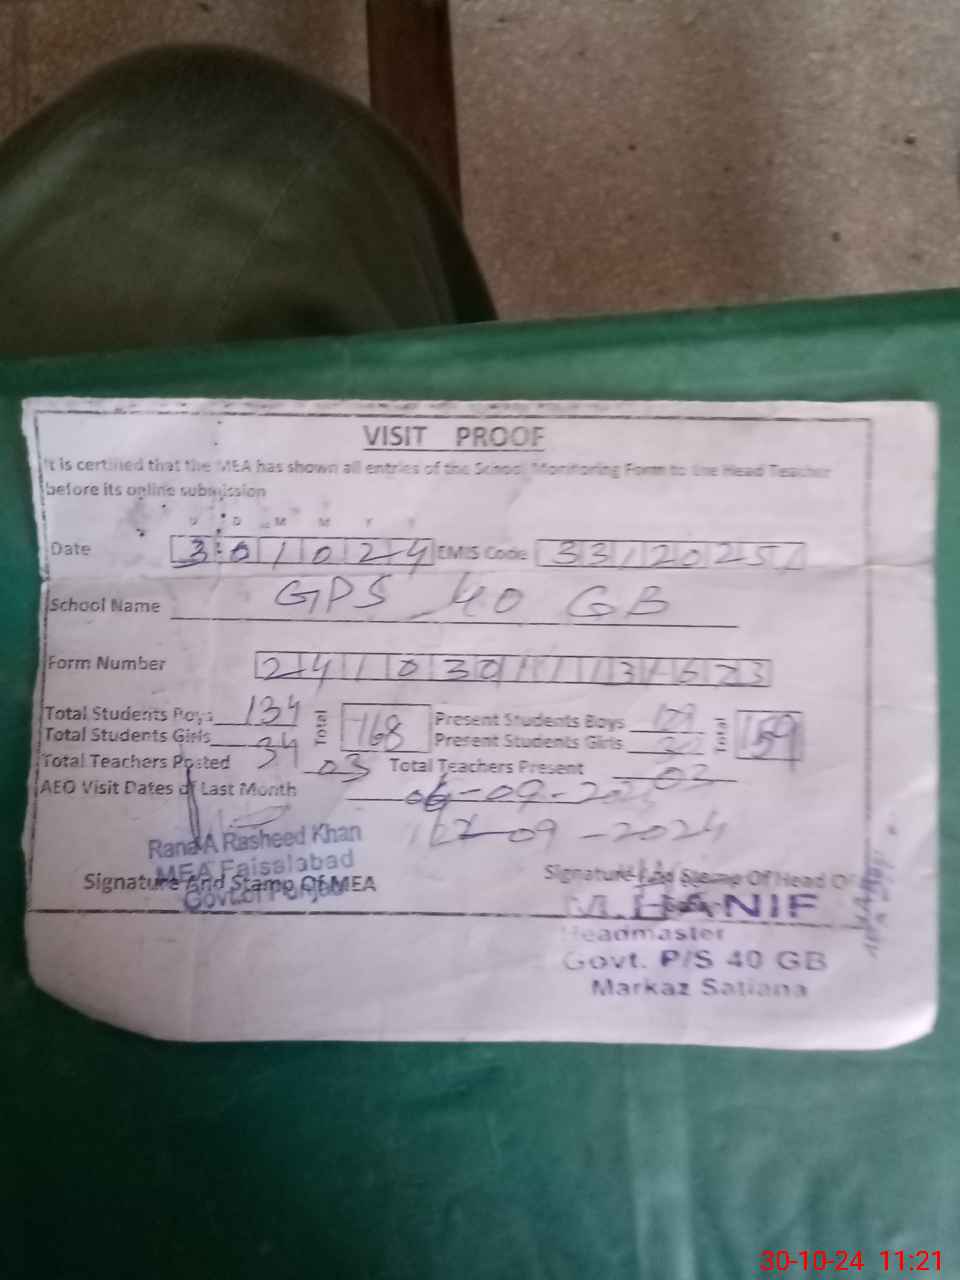 VISIT PROOF
It is certified that the MEA has shown all entries of the School Monitoring Form to the Head Teacher
before its online submission
D D M M Y Y
Date 301024 EMIS Code 33120251
School Name GPS 40 GB
Form Number
Total Students Boys 134 Total 168 Present Students Boys 129 Total 159
Total Students Girls 34 Present Students Girls 30
Total Teachers Posted 03 Total Teachers Present 03
AEO Visit Dates of Last Month 06-09-2024
-09-2024
Rana A Rasheed Khan
MEA Faisalabad
Govt. of Punjab
Signature And Stamp Of MEA
Signature And Stamp Of Head
M. HANIF
Headmaster
Govt. P/S 40 GB
Markaz Satiana
30-10-24 11:21